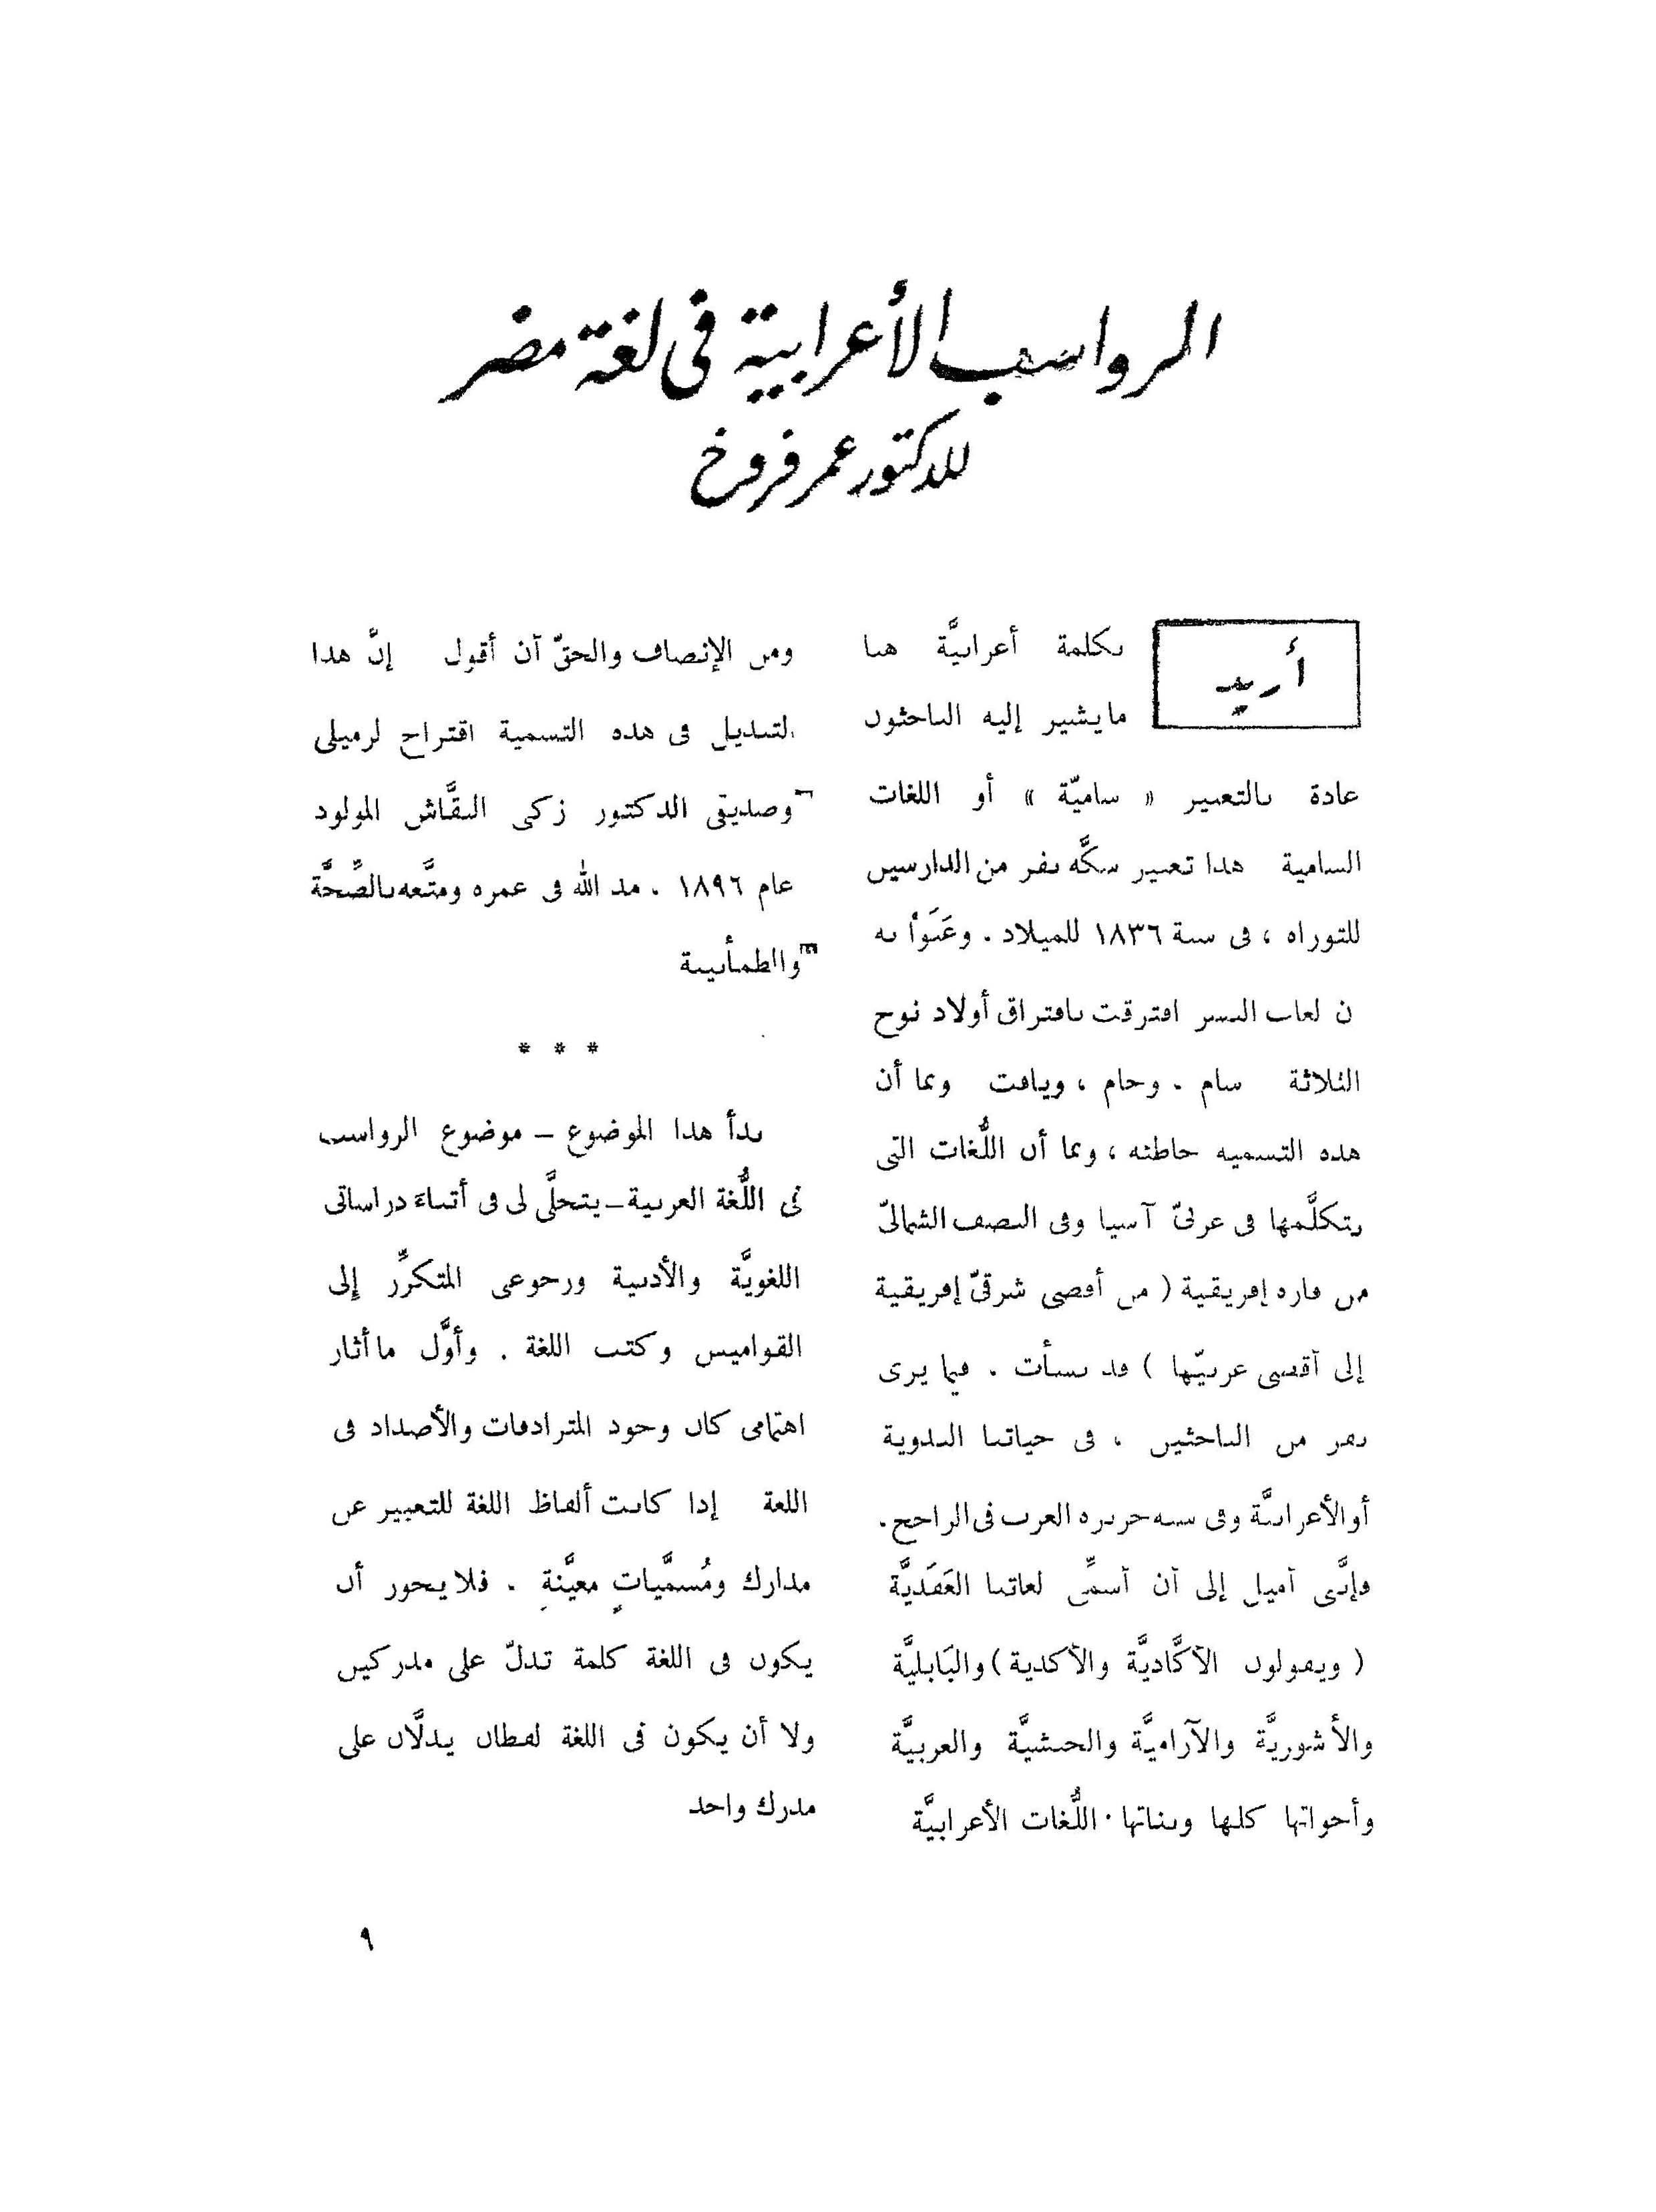 الرواسب الأعرابية في لغة مضر
للدكتور عمر فروخ
أريد
بكلمة أعرابيَّة هنا
مايشير إليه الباحثون
عادة بالتعبير « ساميّة » أو اللغات
السامية هذا تعبير سكَّه نفر من الدارسين
للتوراة ، فى سنة ١٨٣٦ للميلاد . وعَنَوْا به
ن لغات البشر افترقت بافتراق أولاد نوح
الثلاثة سام . وحام ، ويافت وبما أن
هذه التسمية خاطئة ، وبما أن اللُّغات التى
يتكلَّمها فى غربىّ آسيا وفى النصف الشمالىّ
من قارة إفريقية ( من أقصى شرقىّ إفريقية
إلى أقصى غربيّها ) قد نشأت . فيما يرى
نفر من الباحثين ، فى حياتنا البدوية
أوالأعرابيَّة وفى شبه جزيرة العرب فى الراجح .
فإنَّى أميل إلى أن أسمِّى لغاتنا العَقَديَّة
( ويقولون الأكَّاديَّة والأكدية ) والبَابليَّة
والأشوريَّة والآراميَّة والحبشيَّة والعربيَّة
وأخواتها كلها وبناتها . اللُّغات الأعرابيَّة
ومن الإنصاف والحقّ أن أقول إنَّ هذا
لتبديل فى هذه التسمية اقتراح لزميلى
وصديقى الدكتور زكى النقَّاش المولود
عام ١٨٩٦ . مد الله فى عمره ومتَّعه بالصِّحَّة
والطمأنينة
* * *
بدأ هذا الموضوع – موضوع الرواسب
فى اللُّغة العربية – يتجلَّى لى فى أثناء دراساتى
اللغويَّة والأدبية ورجوعى المتكرِّر إلى
القواميس وكتب اللغة . وأوَّل ما أثار
اهتمامى كان وجود المترادفات والأضداد فى
اللغة إذا كانت ألفاظ اللغة للتعبير عن
مدارك ومُسمَّياتٍ معيَّنةٍ . فلا يجوز أن
يكون فى اللغة كلمة تدلّ على مدركين
ولا أن يكون فى اللغة لفظان يدلَّان على
مدرك واحد
٩